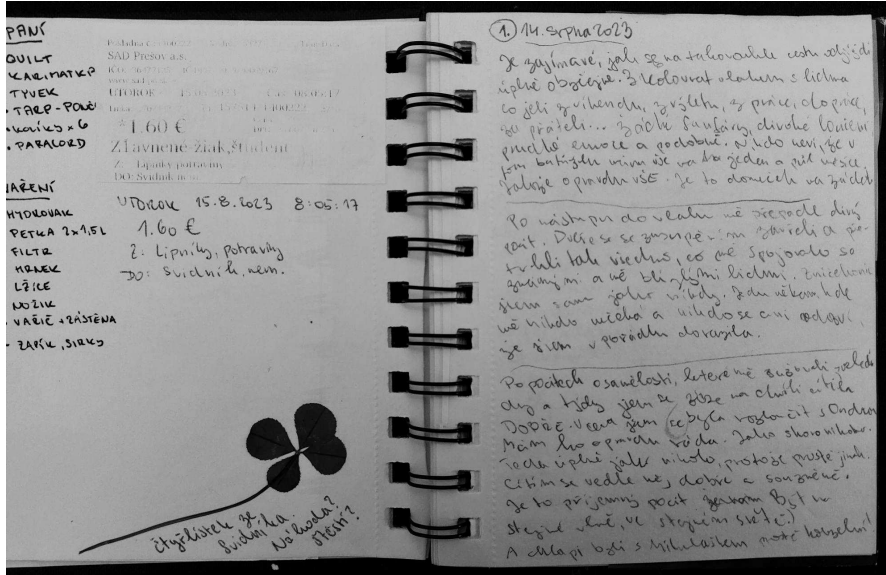 PANÍ
QUILT
KARIMATKA
TYVEK
TARP-PONČ
KOLÍKY x 6
PARACORD
SAD Prešov a.s.
UTOROK
*1.60 €
Zľavnené-žiak, študent
Z: Lipníky, potraviny
DO: Svidník, n
VAŘENÍ
HYDROVAK
PETKA 2x1,5L
FILTR
HRNEK
LŽÍCE
NOŽÍK
VAŘIČ + ZÁSTĚNA
- ZAPÍK, SIRKY
UTOROK 15.8.2023 8:05:17
1.60 €
Z: Lipníky, potraviny
DO: Svidník, nem.
čtyřlístek ze
Svidníka.
Náhoda?
Štěstí?
1. 14. srpna 2023
Je zajímavé, jak se na takovouhle cestu odjíždí
úplně obyčejně. S kolovrat vlakem s lidma
co jeli z víkendu, z výletu, z práce, do práce,
za přáteli... Žádné fanfáry, divoké loučení
prudké emoce a podobně. Nikdo neví, že v
tom batůžku mám vše na tra jeden a půl měsíce.
Jakože opravdu VŠE. Je to domeček na zádech
Po nástupu do vlaku mě přepadl divný
pocit. Dveře se za
tu vše všechno, co mě spojovalo se
známými a mě blízkými lidmi. Zničehonic
jsem sama jako nikdy. Jedu někam, kde
mě nikdo nečeká a nikdo se ani nedozví,
že jsem v pořádku dorazila.
Po pocitech osamělosti, které mě sužovali poslední
dny a týdny jsem se zase na chvíli cítila
DOBŘE. Včera jsem se byla rozloučit s Ondrou
Mám ho opravdu ráda. Jako skoro nikoho.
Teda úplně jako nikoho, protože prostě jinak.
Cítím se vedle něj dobře a souzněně.
Je to příjemný pocit být na
stejné vlně, ve stejném světě :)
A chlapi byli s Mikulášem prostě kouzelní!